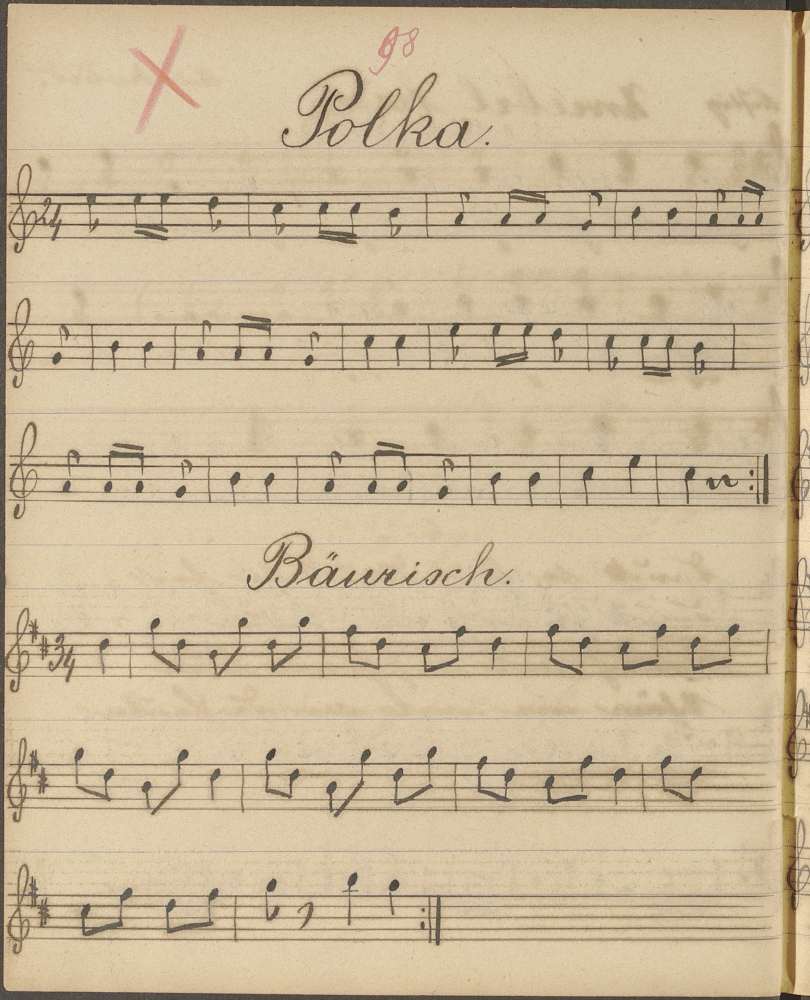 98
Polka.
2/4
Bäurisch.
3/4